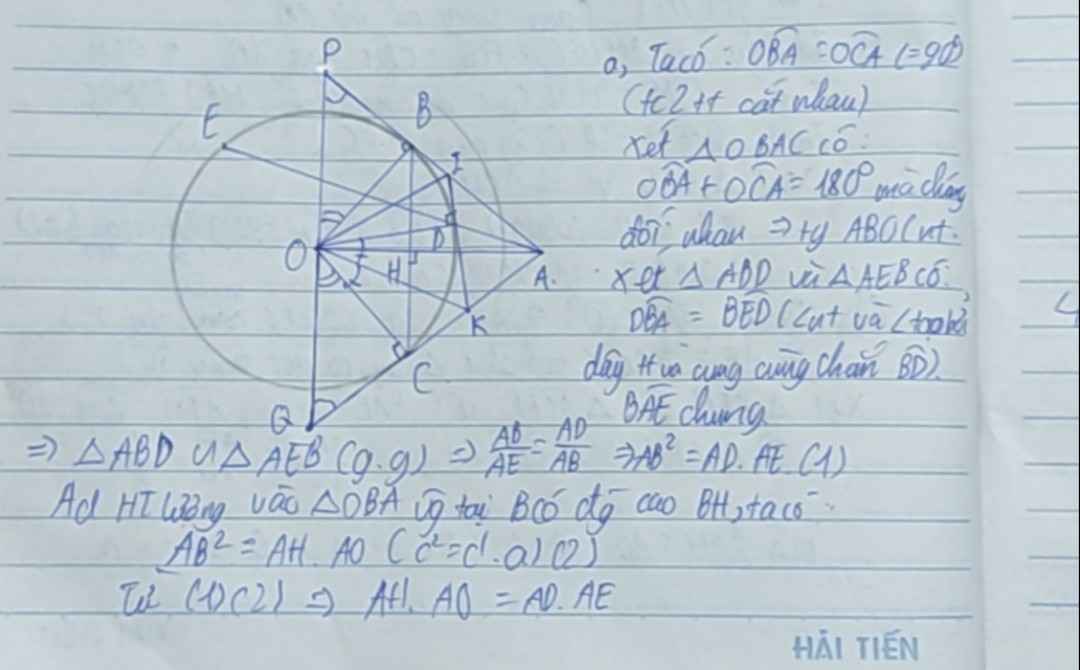 P
E
B
I
O
D
H
A.
K
C
Q
a, Ta có : OBA = OCA (=90°)
(tc 2 tt cắt nhau)
xét △ OBAC có:
OBA + OCA = 180° mà chúng
đối nhau => tg ABOC nt.
xét △ ABD và △ AEB có:
DBA = BED (∠nt và ∠ tạo bởi
dây tt và cung cùng chắn BD).
BAE chung
=> △ABD ∽ △ AEB (g.g) => AB/AE = AD/AB => AB² = AD. AE. (1)
Ad HT lượng vào △OBA vg tại B có đg cao BH, ta có:
AB² = AH. AO (c² = c'. a) (2)
Từ (1) (2) => AH. AO = AD. AE
HẢI TIẾN